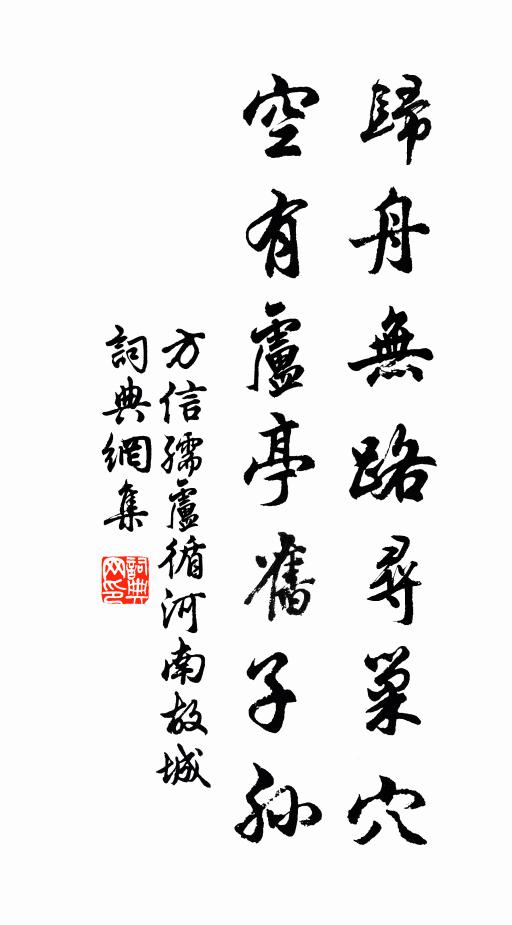 歸舟無路尋巢穴
空有盧亭舊子孫
方信孺盧循河南故城
詞典網集
詞典网印